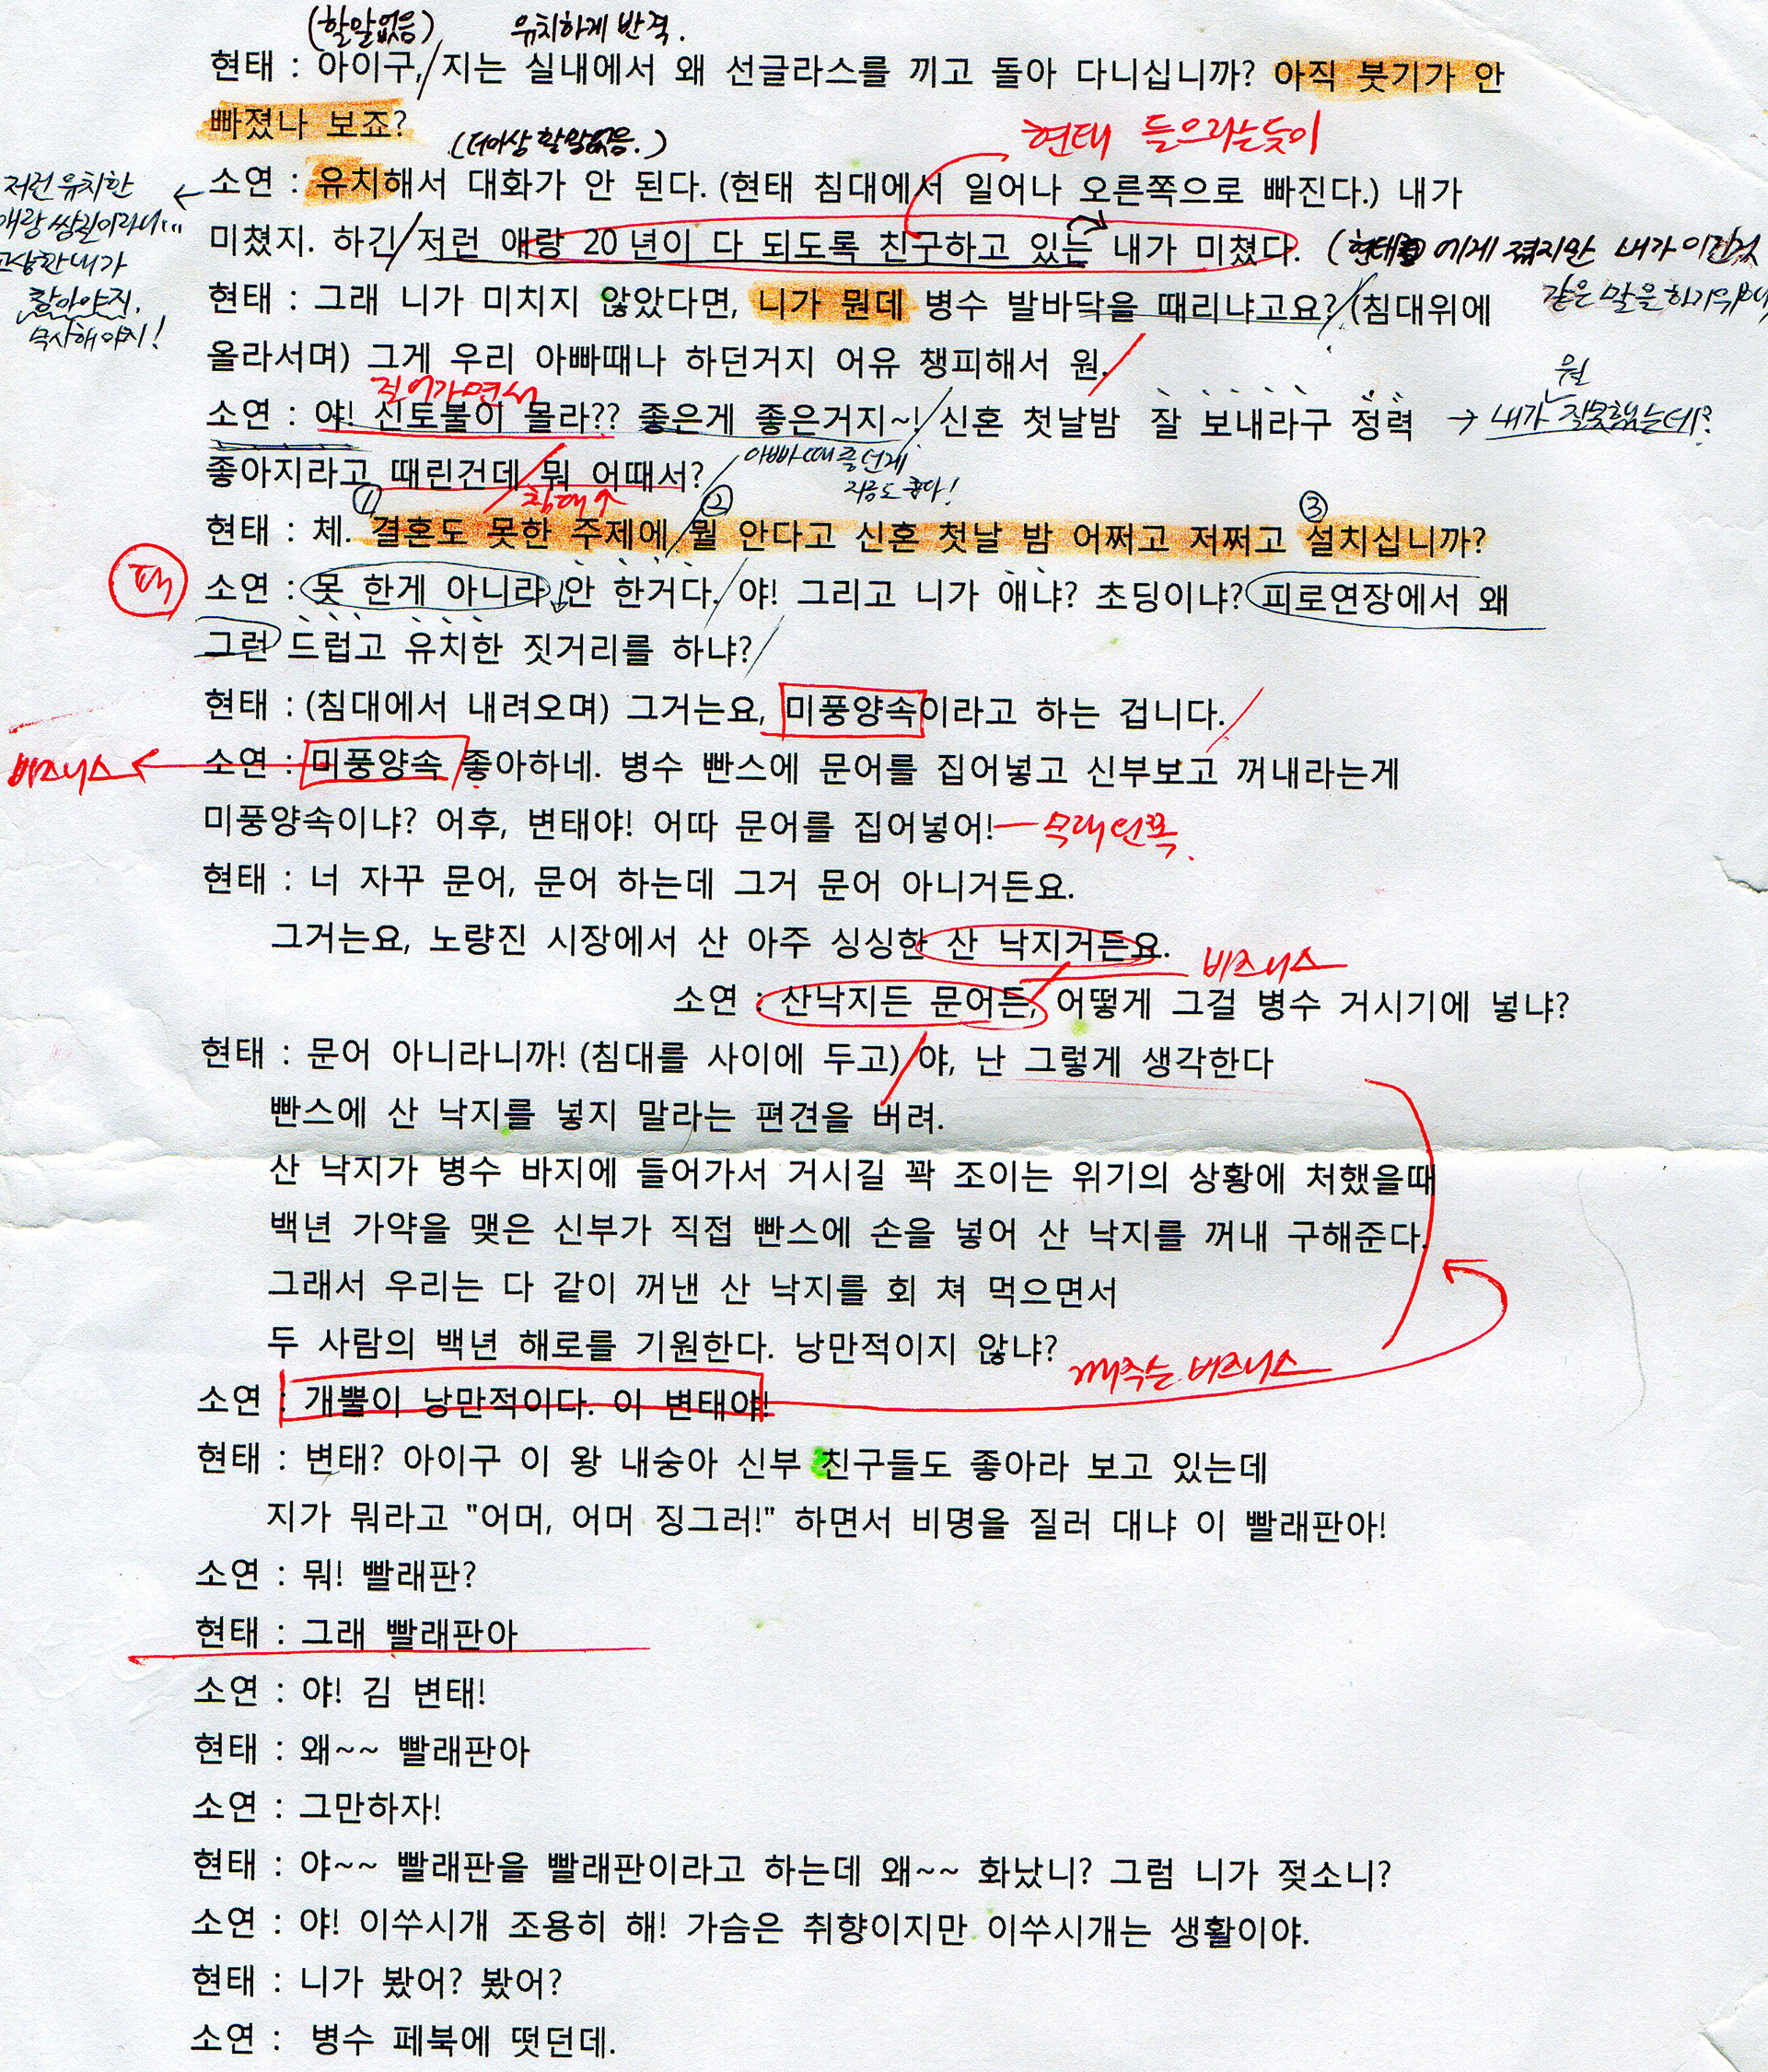 (할말없음) 유치하게 반격.
현태 : 아이구, 지는 실내에서 왜 선글라스를 끼고 돌아 다니십니까? 아직 붓기가 안
빠졌나 보죠?
(더이상 할말없음.)
현태 들으라는듯이
소연 : 유치해서 대화가 안 된다. (현태 침대에서 일어나 오른쪽으로 빠진다.) 내가
저런 유치한
미쳤지. 하긴 저런 애랑 20년이 다 되도록 친구하고 있는 내가 미쳤다.
참아야지.
무시해야지!
현태 : 그래 니가 미치지 않았다면, 니가 뭔데 병수 발바닥을 때리냐고요? (침대위에
올라서며) 그게 우리 아빠때나 하던거지 어유 챙피해서 원.
짚어가면서
소연 : 야! 신토불이 몰라?? 좋은게 좋은거지~! 신혼 첫날밤 잘 보내라구 정력
뭘
→ 내가 잘못했는데?
좋아지라고 때린건데 뭐 어때서?
아빠때 좋던게
지금도 좋다!
① 침대↑ ② ③
현태 : 체. 결혼도 못한 주제에 뭘 안다고 신혼 첫날 밤 어쩌고 저쩌고 설치십니까?
소연 : 못 한게 아니라 안 한거다. 야! 그리고 니가 애냐? 초딩이냐? 피로연장에서 왜
그런 드럽고 유치한 짓거리를 하냐?
현태 : (침대에서 내려오며) 그거는요, 미풍양속이라고 하는 겁니다.
비즈니스 ←
소연 : 미풍양속 좋아하네. 병수 빤스에 문어를 집어넣고 신부보고 꺼내라는게
미풍양속이냐? 어후, 변태야! 어따 문어를 집어넣어!
현태 : 너 자꾸 문어, 문어 하는데 그거 문어 아니거든요.
그거는요, 노량진 시장에서 산 아주 싱싱한 산 낙지거든요.
비즈니스
소연 : 산낙지든 문어든, 어떻게 그걸 병수 거시기에 넣냐?
현태 : 문어 아니라니까! (침대를 사이에 두고) 야, 난 그렇게 생각한다
빤스에 산 낙지를 넣지 말라는 편견을 버려.
산 낙지가 병수 바지에 들어가서 거시길 꽉 조이는 위기의 상황에 처했을때
백년 가약을 맺은 신부가 직접 빤스에 손을 넣어 산 낙지를 꺼내 구해준다.
그래서 우리는 다 같이 꺼낸 산 낙지를 회 쳐 먹으면서
두 사람의 백년 해로를 기원한다. 낭만적이지 않냐?
깨주는 비즈니스
소연 : 개뿔이 낭만적이다. 이 변태야!
현태 : 변태? 아이구 이 왕 내숭아 신부 친구들도 좋아라 보고 있는데
지가 뭐라고 "어머, 어머 징그러!" 하면서 비명을 질러 대냐 이 빨래판아!
소연 : 뭐! 빨래판?
현태 : 그래 빨래판아
소연 : 야! 김 변태!
현태 : 왜~~ 빨래판아
소연 : 그만하자!
현태 : 야~~ 빨래판을 빨래판이라고 하는데 왜~~ 화났니? 그럼 니가 젖소니?
소연 : 야! 이쑤시개 조용히 해! 가슴은 취향이지만 이쑤시개는 생활이야.
현태 : 니가 봤어? 봤어?
소연 : 병수 페북에 떳던데.